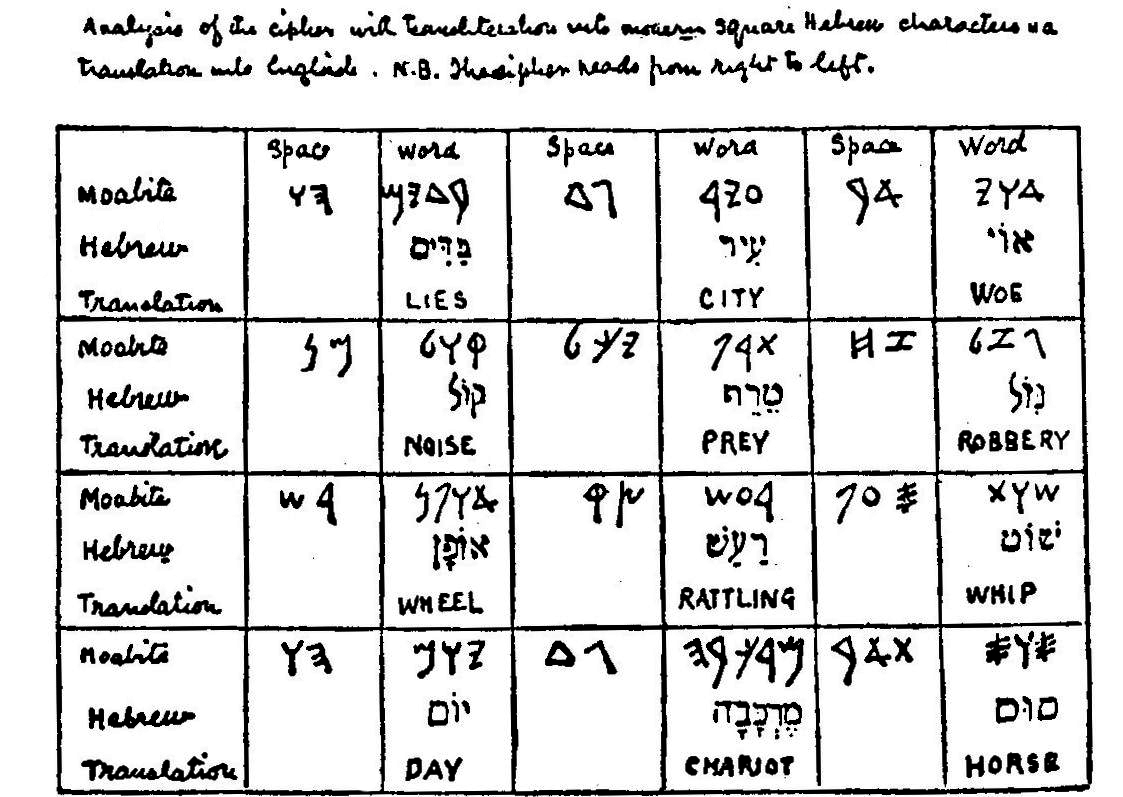 Analysis of the cipher with transliteration into modern square Hebrew characters
translation into English. N.B. The cipher reads from right to left.
Space Word Space Word Space Word
Moabite 𐤄𐤅 𐤁𐤃𐤉𐤌 𐤂𐤃 𐤏𐤉𐤓 𐤀𐤁 𐤀𐤅𐤉
Hebrew בַּדִּים עִיר אוֹי
Translation LIES CITY WOE
Moabite 𐤌𐤍 𐤒𐤅𐤋 𐤉𐤊𐤋 𐤕𐤓𐤐 𐤆𐤇 𐤂𐤆𐤋
Hebrew קוֹל טֶרֶף גזל
Translation NOISE PREY ROBBERY
Moabite 𐤓𐤔 𐤀𐤅𐤐𐤍 𐤑𐤒 𐤓𐤏𐤔 𐤎𐤏𐤐 𐤔𐤅𐤕
Hebrew אוֹפָן רַעַשׁ שׁוֹט
Translation WHEEL RATTLING WHIP
Moabite 𐤄𐤅 𐤉𐤅𐤌 𐤂𐤃 𐤌𐤓𐤊𐤁𐤄 𐤕𐤀𐤁 𐤎𐤅𐤎
Hebrew יוֹם מֶרְכָּבָה סוּס
Translation DAY CHARIOT HORSE